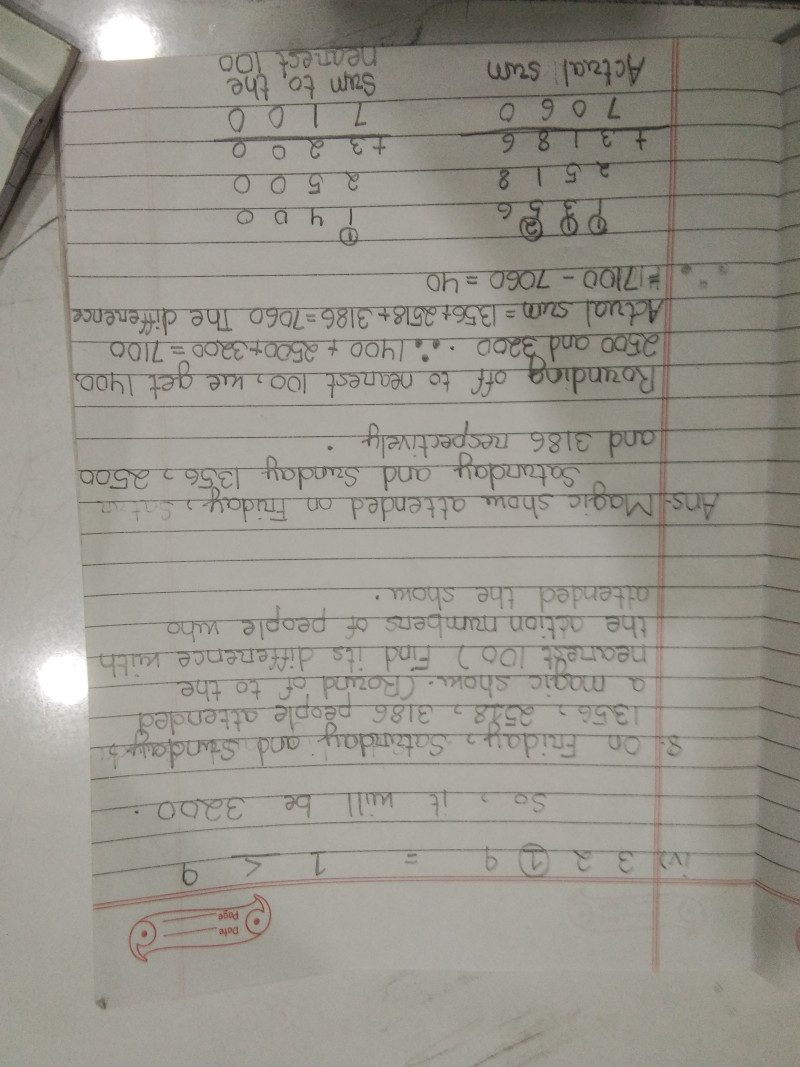 Date
Page
iv) 3 2 ① 9 = 1 < 9
So, it will be 3200.
8. On Friday, Saturday and Sunday
1356, 2518, 3186 people attended
a magic show. (Round of to the
nearest 100) Find its difference with
the action numbers of people who
attended the show.
Ans- Magic show attended on Friday,
Saturday and Sunday 1356, 2500
and 3186 respectively.
Rounding off to nearest 100, we get 1400,
2500 and 3200. ∴ 1400 + 2500 + 3200 = 7100
Actual sum = 1356 + 2518 + 3186 = 7060 The difference
7100 - 7060 = 40
① ① ②
1 3 5 6 1 4 0 0
2 5 1 8 2 5 0 0
+ 3 1 8 6 + 3 2 0 0
7 0 6 0 7 1 0 0
Actual sum Sum to the
nearest 100